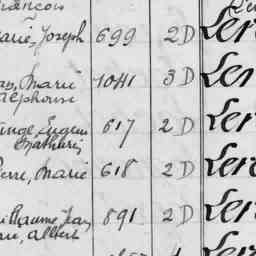 François
Marie, Joseph 699 2D Ler
Marie 1041 3D Ler
Alphonse
Ange, Eugène 617 2D Ler
Mathurin
Pierre, Marie 618 2D Ler
Guillaume, Jean 891 2D Ler
Albert